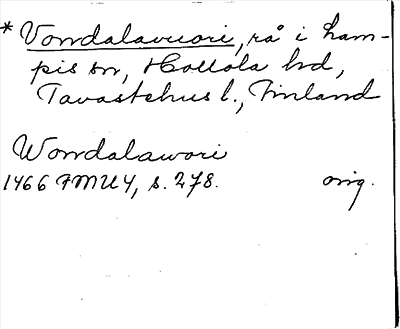 * Vondalavuori, rå i Lam-
pis sn, Hollola hd,
Tavastehus l., Finland
Wondalawori
1466 FMU 4, s. 278. orig.